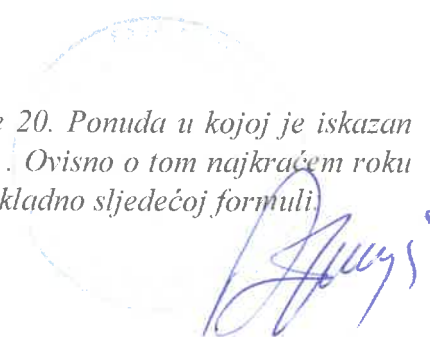 e 20. Ponuda u kojoj je iskazan
. Ovisno o tom najkraćem roku
kladno sljedećoj formuli: